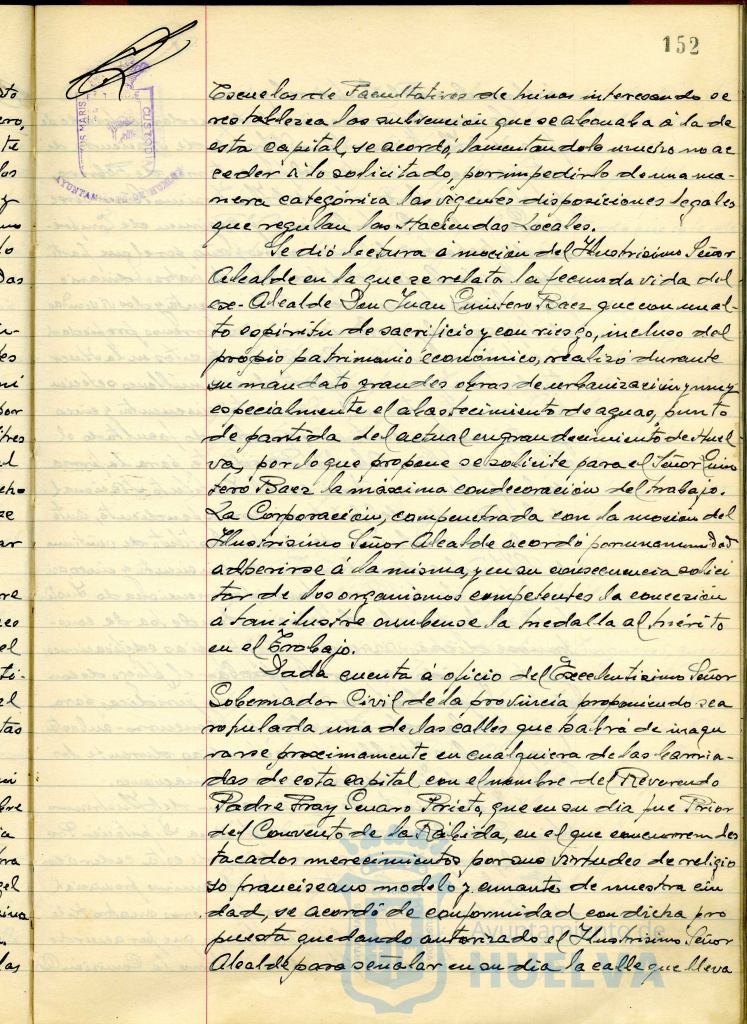 152
Escuelas de Facultativos de minas interesando se
restablezca las subvención que se abonaba á la de
esta capital, se acordó, lamentandolo mucho no ac
ceder á lo solicitado, por impedirlo de una ma-
nera categórica las vigentes disposiciones legales
que regulan las Haciendas Locales.
Se dió lectura á moción del Ilustrisimo Señor
Alcalde en la que se relata la fecunda vida del
ex-Alcalde Don Juan Quintero Baez que con un al-
to espiritu de sacrificio y con riesgo, incluso del
propio patrimonio económico, realizó durante
su mandato grandes obras de urbanización y muy
especialmente el abastecimiento de aguas, punto
de partida del actual engrandecimiento de Huel-
va, por lo que propone se solicite para el Señor Quin
tero Baez la máxima condecoración del trabajo.
La Corporación, compenetrada con la moción del
Ilustrisimo Señor Alcalde acordó por unanimidad
adherirse á la misma, y en su consecuencia solici
tar de los organismos competentes la concesión
á tan ilustre onubense la medalla al mérito
en el Trabajo.
Dada cuenta á oficio del Excelentisimo Señor
Gobernador Civil de la provincia proponiendo sea
rotulada una de las calles que habrá de inaugu
rarse proximamente en cualquiera de las barria-
das de esta capital con el nombre del Reverendo
Padre Fray Genaro Prieto, que en su dia fue Prior
del Convento de la Rábida, en el que concurren des
tacados merecimientos por sus virtudes de religio
so franciscano modelo y amantes de nuestra ciu
dad, se acordó de conformidad con dicha pro
puesta quedando autorizado el Ilustrisimo Señor
Alcalde para señalar en su dia la calle que lleva
CUSTODI
AYUNTAMIENTO DE HUELVA
Ayuntamiento de
HUELVA